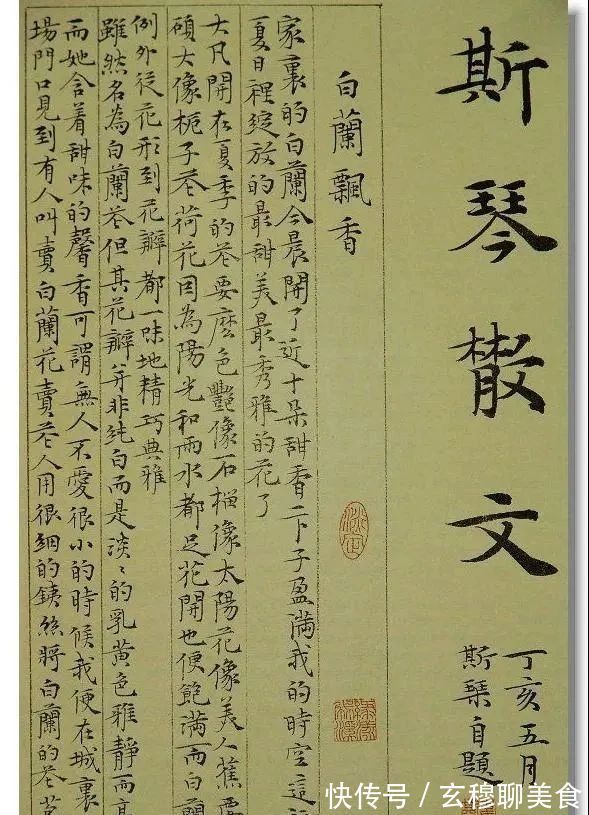 斯琴散文
丁亥五月
斯琴自題
白蘭飄香
家裏的白蘭今晨開了近十朵甜香一下子盈滿我的時空這
夏日裡綻放的最甜美最秀雅的花了
大凡開在夏季的花要麼色艷像石榴像太陽花像美人蕉要
碩大像梔子花荷花因為陽光和雨水都足花開也便飽滿而白蘭
例外從花形到花瓣都一味地精巧典雅
雖然名為白蘭花但其花瓣并非純白而是淡々的乳黃色雅靜而
而她含着甜味的馨香可謂無人不愛很小的時候我便在城裏
場門口見到有人叫賣白蘭花賣花人用很細的銕絲將白蘭的花
快传号/玄穆聊美食